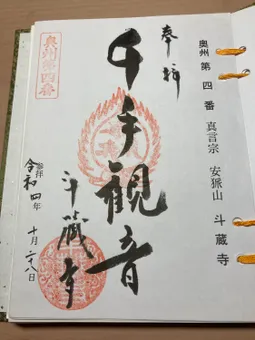 奥州第四番 真言宗 安狐山 斗蔵寺
奉拝
千手観音
斗蔵寺
参拝
令和四年
十月二十八日
奥州第四番